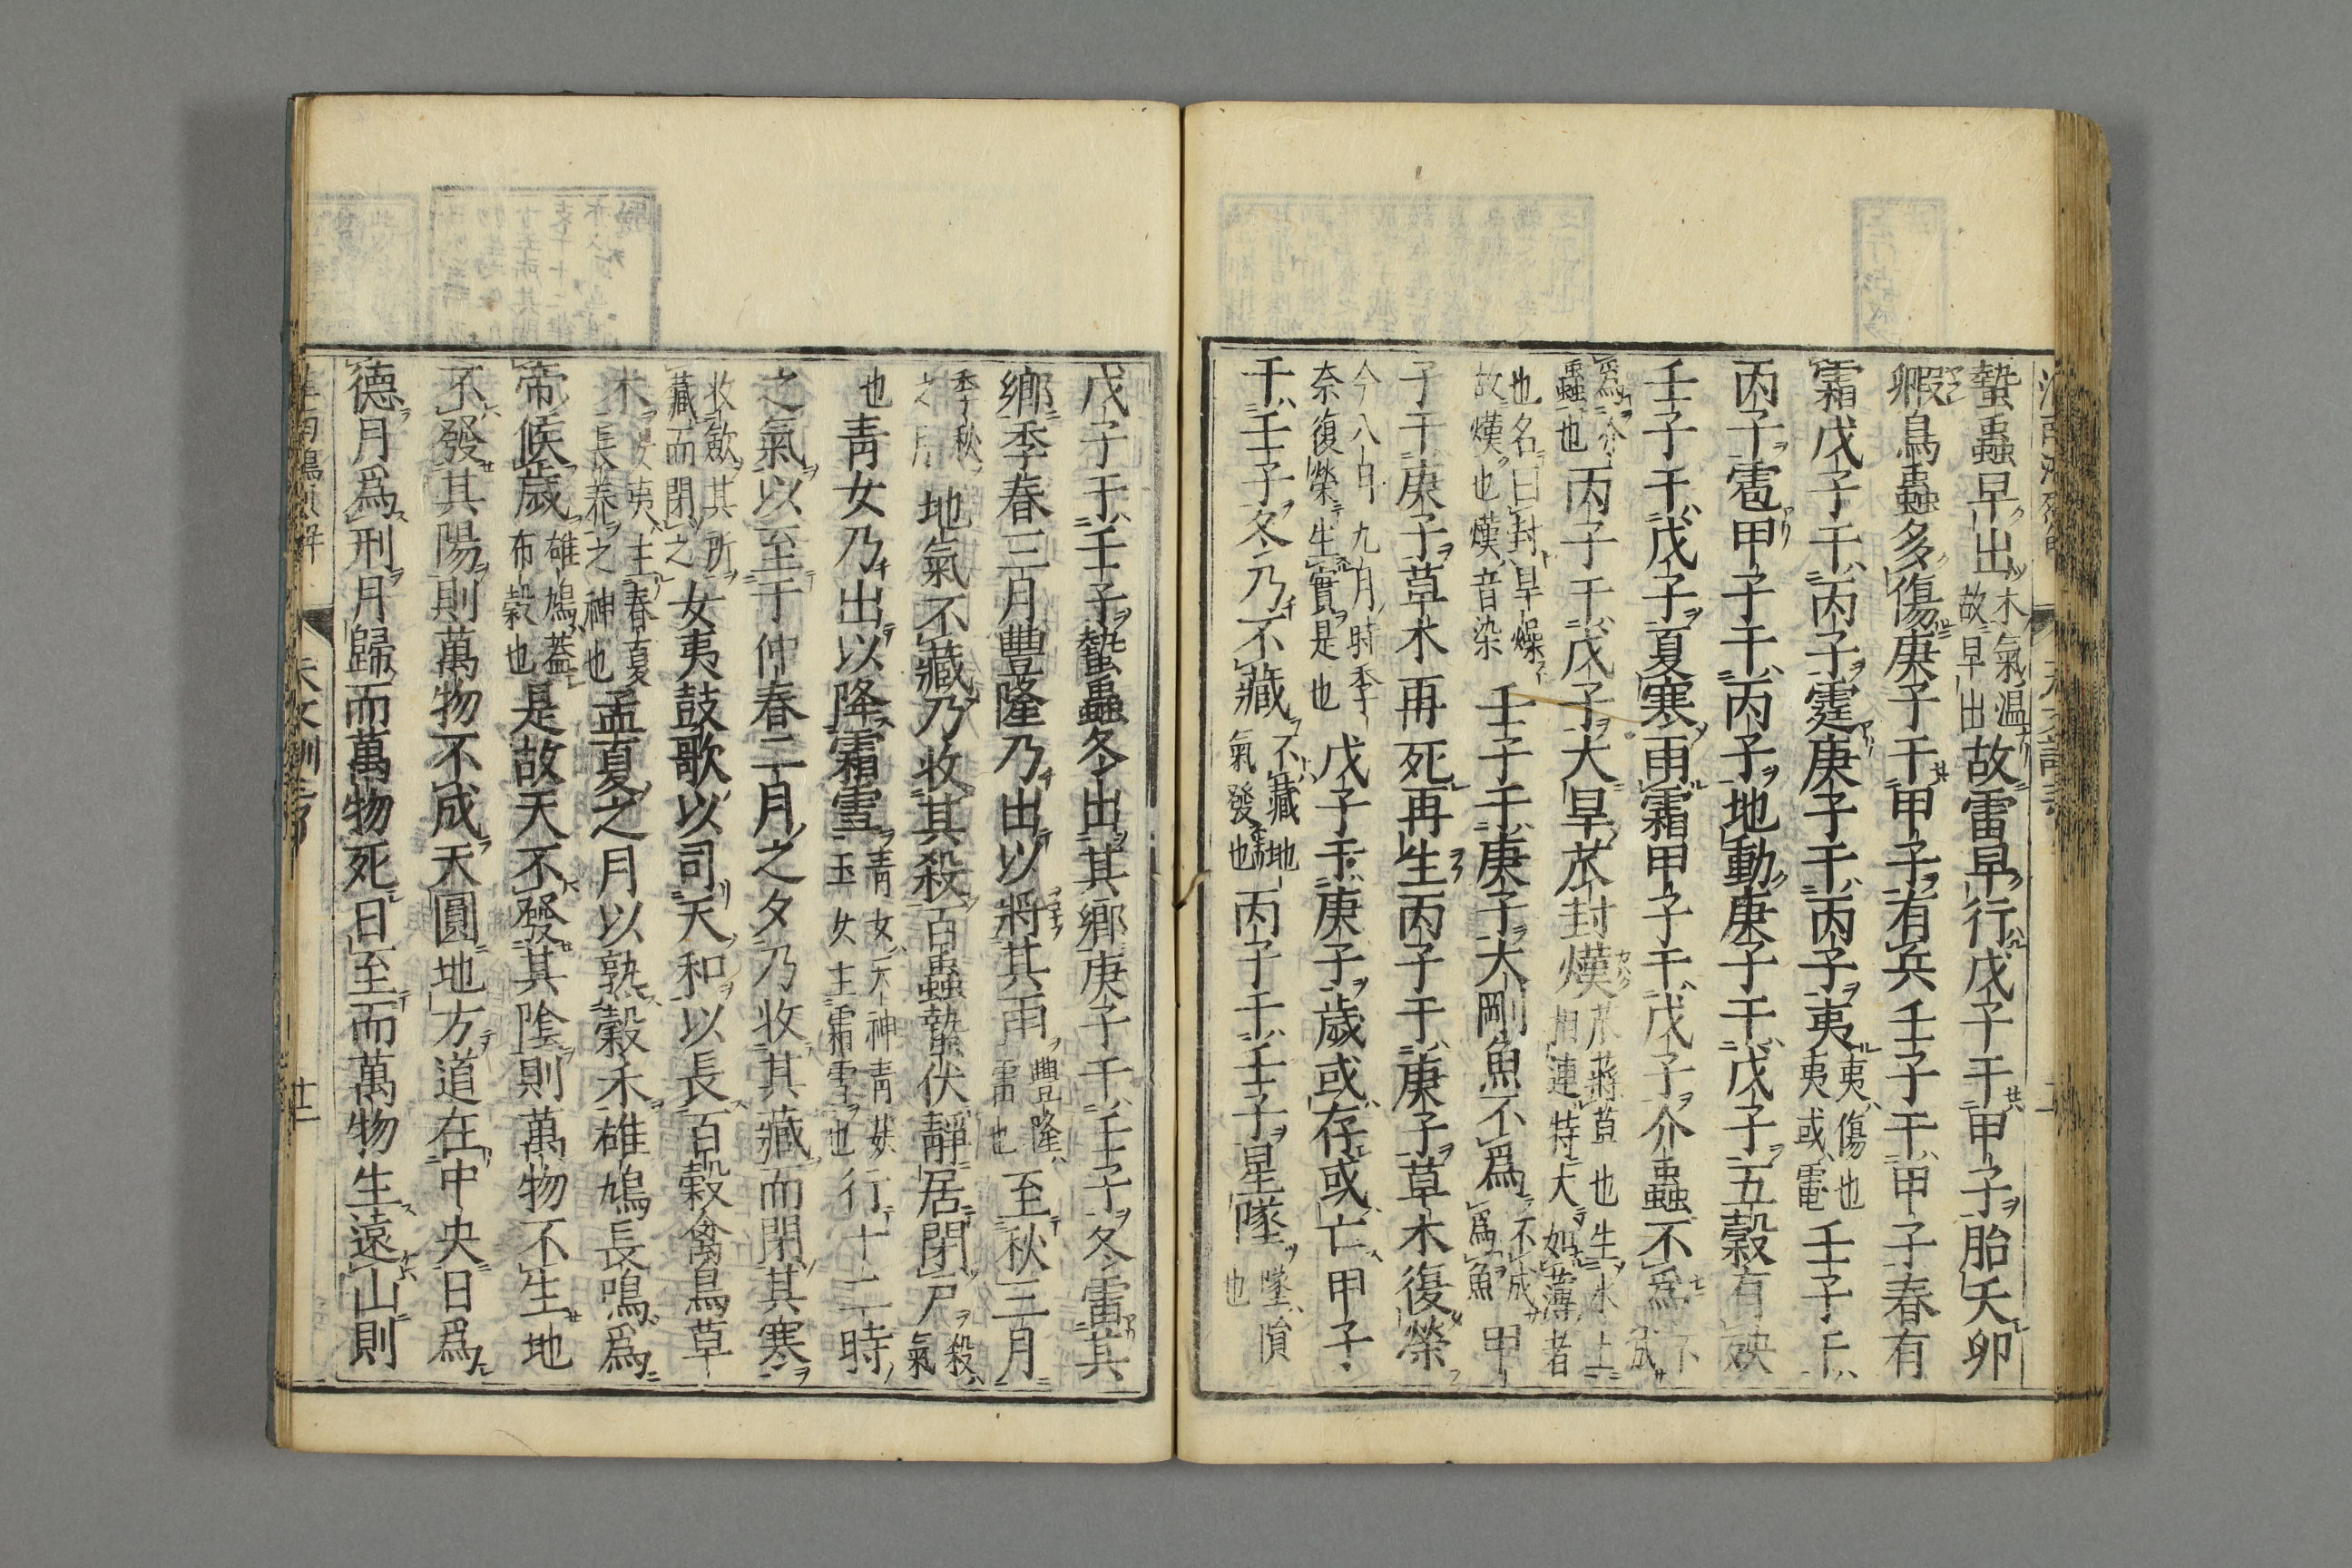 蟄蟲早出木氣溫故早出故雷早行戊子干甲子胎夭卵
毈鳥蟲多傷庚子干甲子有兵壬子干甲子春有
霜戊子干丙子霆庚子干丙子夷夷傷也夷或電壬子干
丙子雹甲子干丙子地動庚子干戊子五穀有殃
壬子干戊子夏寒雨霜甲子干戊子介蟲不為不成
為介蟲也丙子干戊子大旱苽封熯苽蔣草也生水上相連特大如薄者
也名曰封旱燥故熯也熯音染壬子干庚子大剛魚不為不成為魚甲
子干庚子草木再死再生丙子干庚子草木復榮
今八月九月時季奈復榮生實是也戊子干庚子歲或存或亡甲子
干壬子冬乃不藏不藏地氣發也丙子干壬子星墜墜隕也
戊子干壬子蟄蟲冬出其鄉庚子干壬子冬雷其
鄉季春三月豐隆乃出以將其雨豐隆雷也至秋三月
季秋之月地氣不藏乃收其殺百蟲蟄伏靜居閉戶殺氣
也青女乃出以降霜雪青女天神青𡝤玉女主霜雪也行十二時
之氣以至于仲春二月之夕乃收其藏而閉其寒
收斂其所藏而閉之女夷鼓歌以司天和以長百穀禽鳥草
木女夷主春夏長養之神也孟夏之月以熟穀禾雄鳩長鳴為
帝候歲雄鳩蓋布穀也是故天不發其陰則萬物不生地
不發其陽則萬物不成天圓地方道在中央日為
德月為刑月歸而萬物死日至而萬物生遠山則
天文訓三 廿二